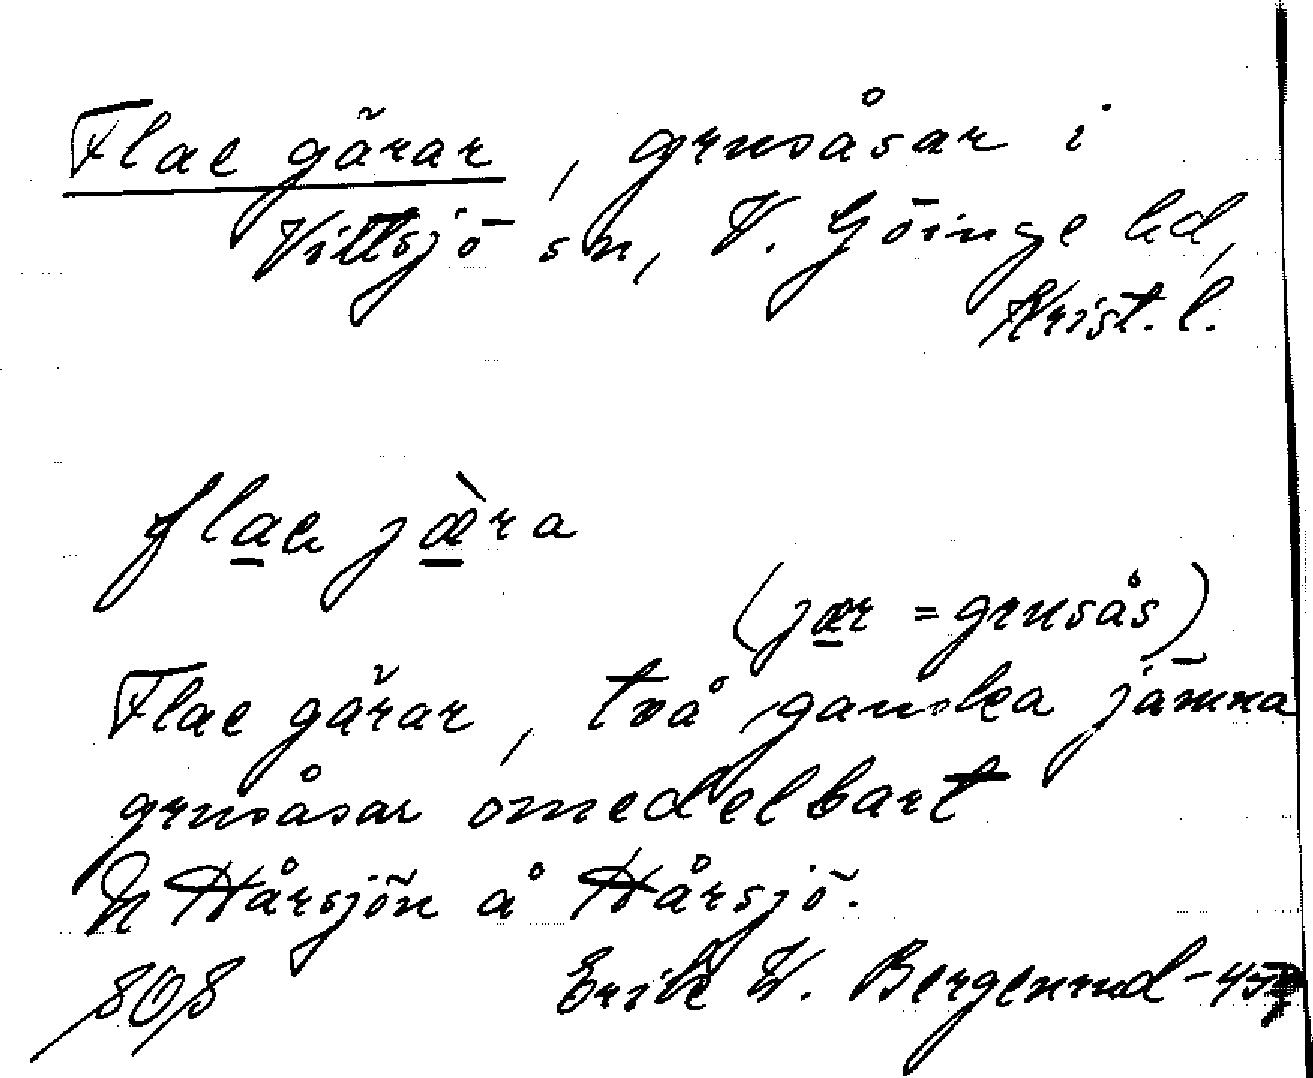 Flae gärar, grusåsar i
Vittsjö sn, V. Göinge hd,
Krist. l.
flae jæ̀ra
(jær = grusås)
Flae gärar, två ganska jämna
grusåsar omedelbart
N Hårsjön å Hårsjö.
808 Erik W. Bergenrud -45